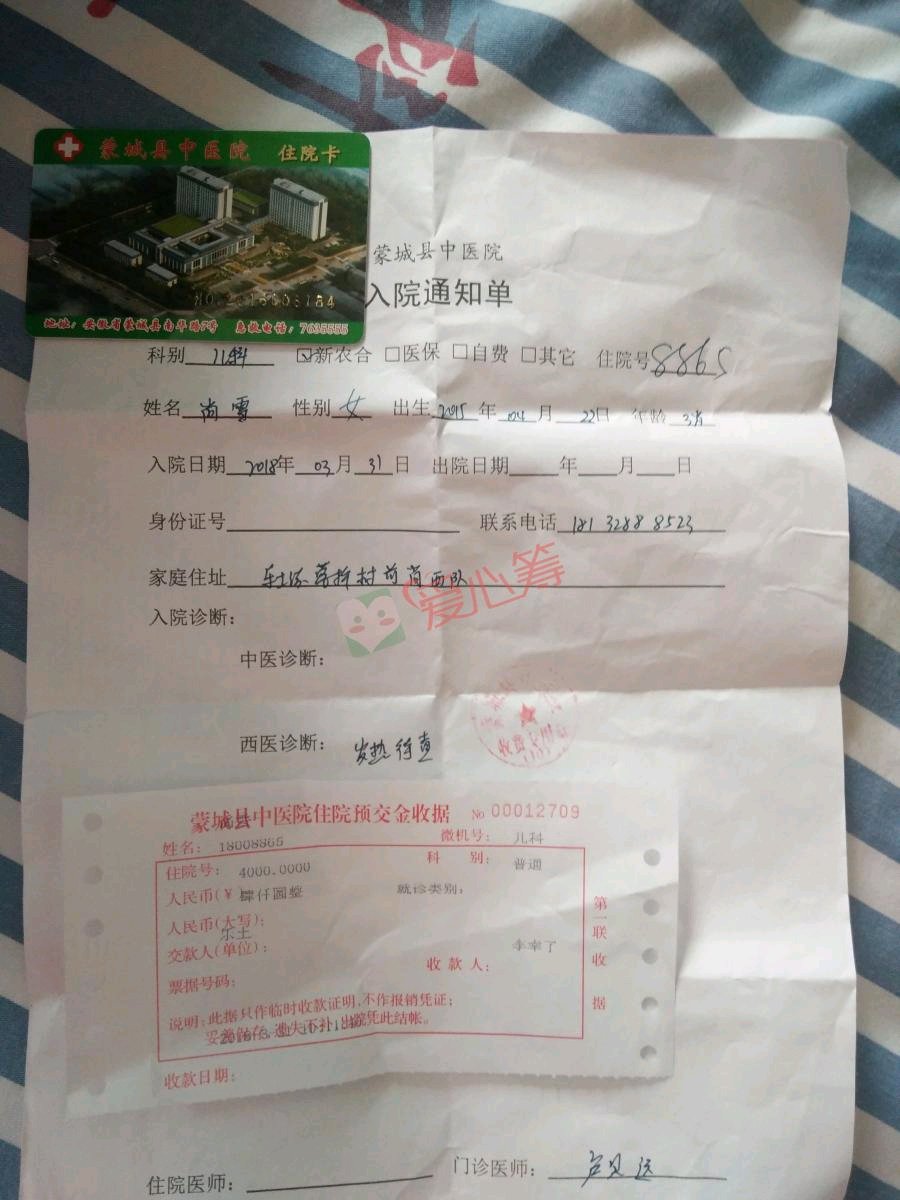 蒙城县中医院 住院卡
地址：安徽省蒙城县南华路7号 急救电话：7635555
蒙城县中医院
入院通知单
科别 儿科 ☑新农合 □医保 □自费 □其它 住院号 8865
姓名 尚雪 性别 女 出生 2015 年 04 月 22日 年龄 3岁
入院日期 2018年 03月 31日 出院日期 年 月 日
身份证号 联系电话 181 3288 8523
家庭住址
爱心筹
入院诊断：
中医诊断：
西医诊断： 发热待查
蒙城县中医院住院预交金收据 No 00012709
姓名： 18008865 微机号： 儿科
住院号： 4000.0000 科 别： 普通
人民币(￥ 肆仟圆整 就诊类别：
人民币(大写)：
乐土
交款人(单位)： 收款人：
票据号码：
说明：此据只作临时收款证明,不作报销凭证；
妥善保存,遗失不补,出院凭此结帐。
收款日期：
第一联 收据
住院医师： 门诊医师：